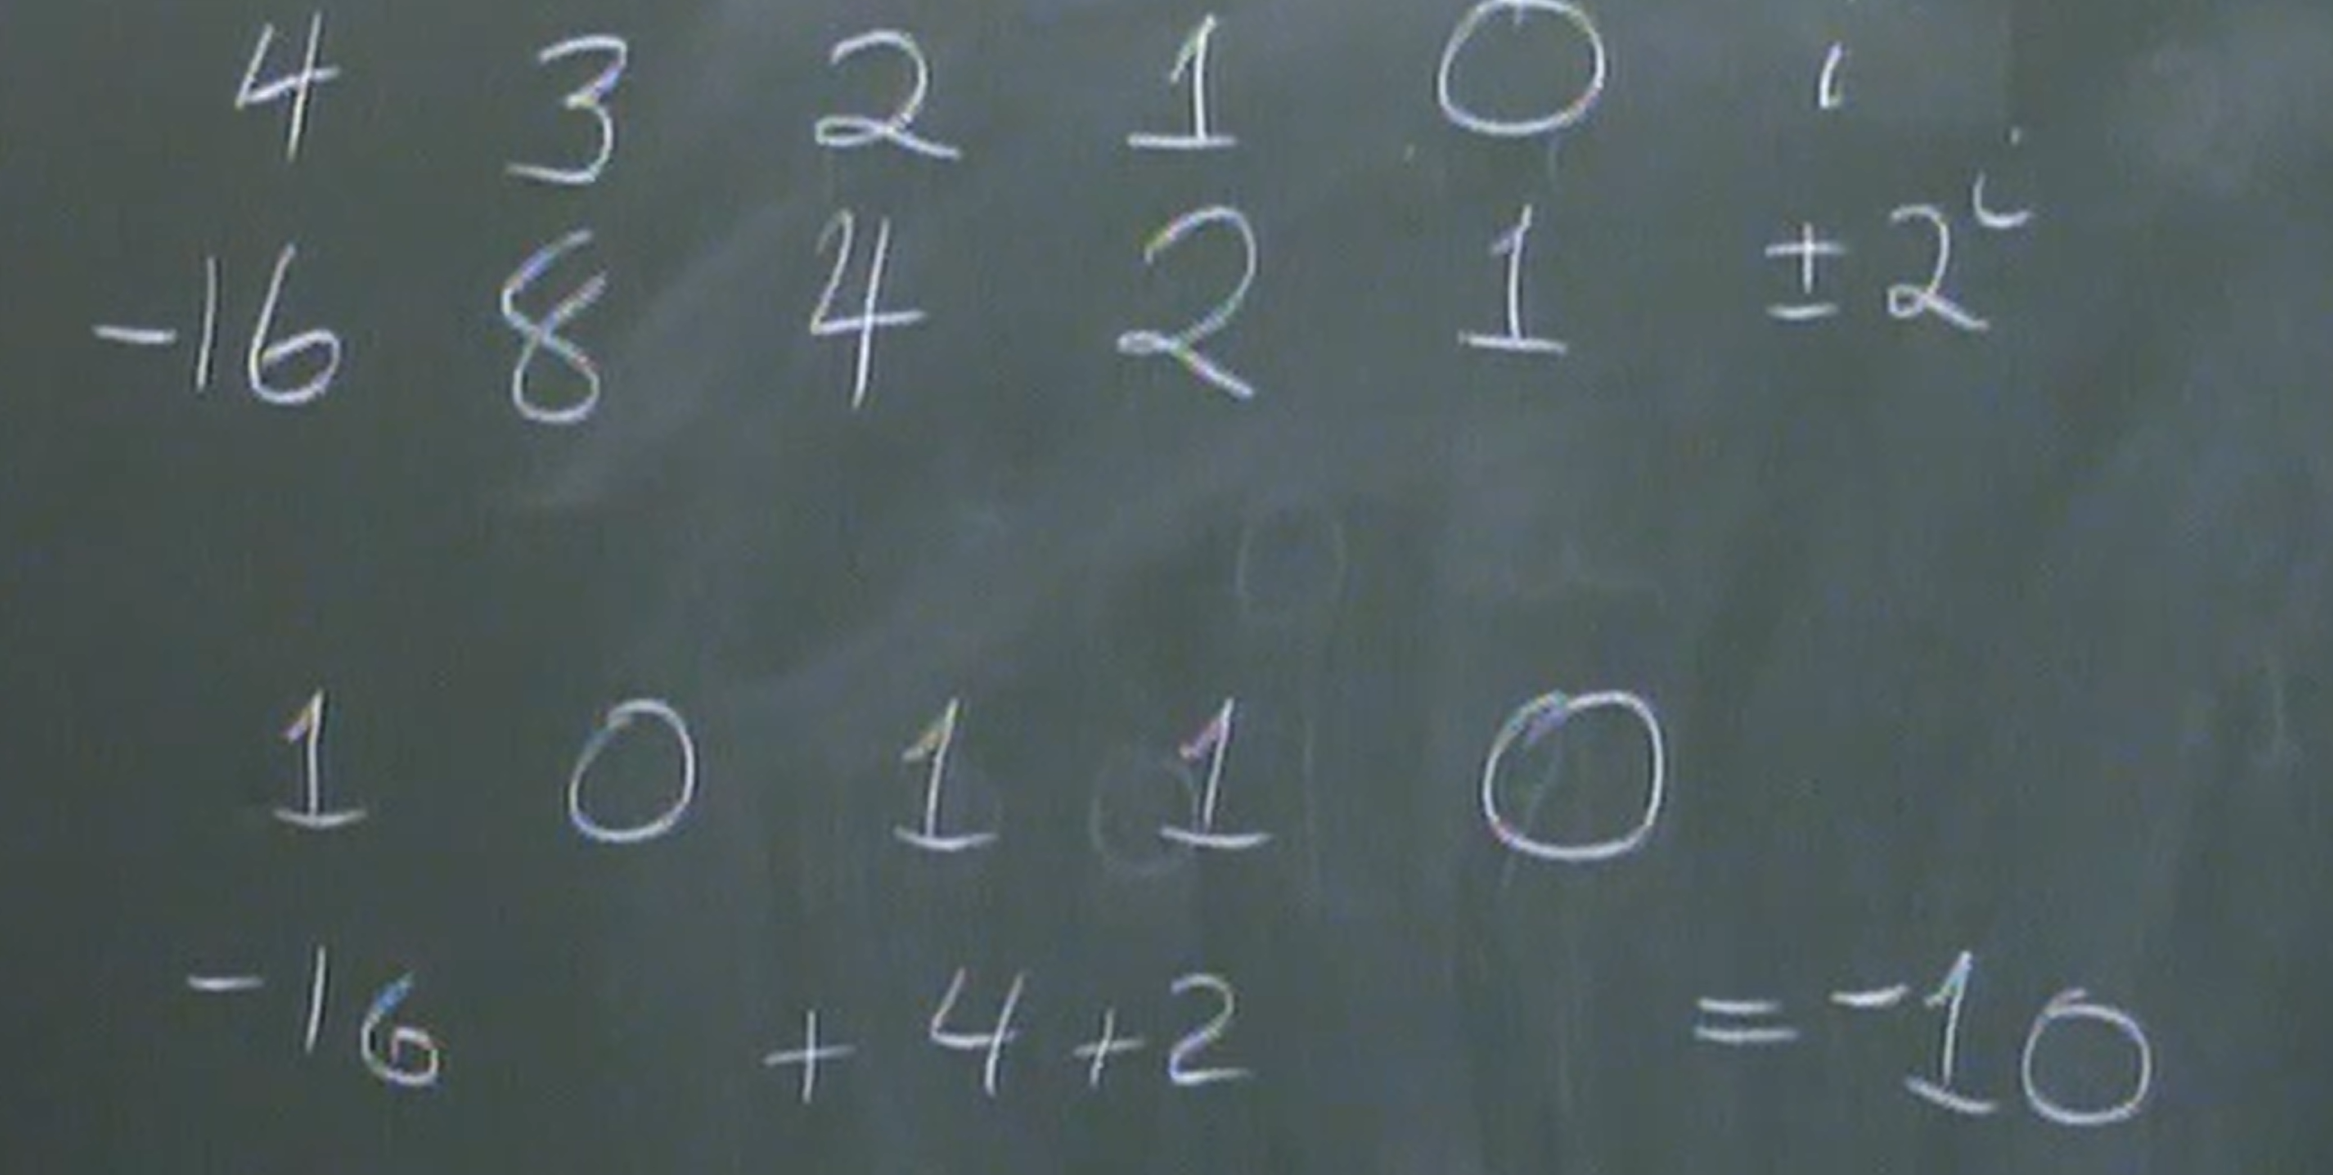 4 3 2 1 0 i
-16 8 4 2 1 ±2^i
1 0 1 1 0
-16 +4+2 =-10